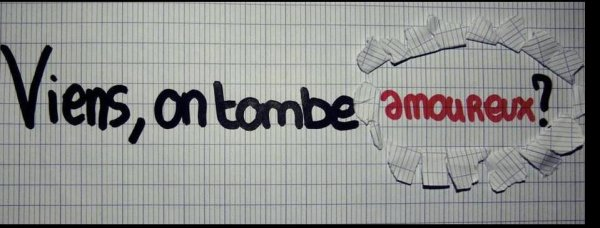 Viens, on tombe amoureux?